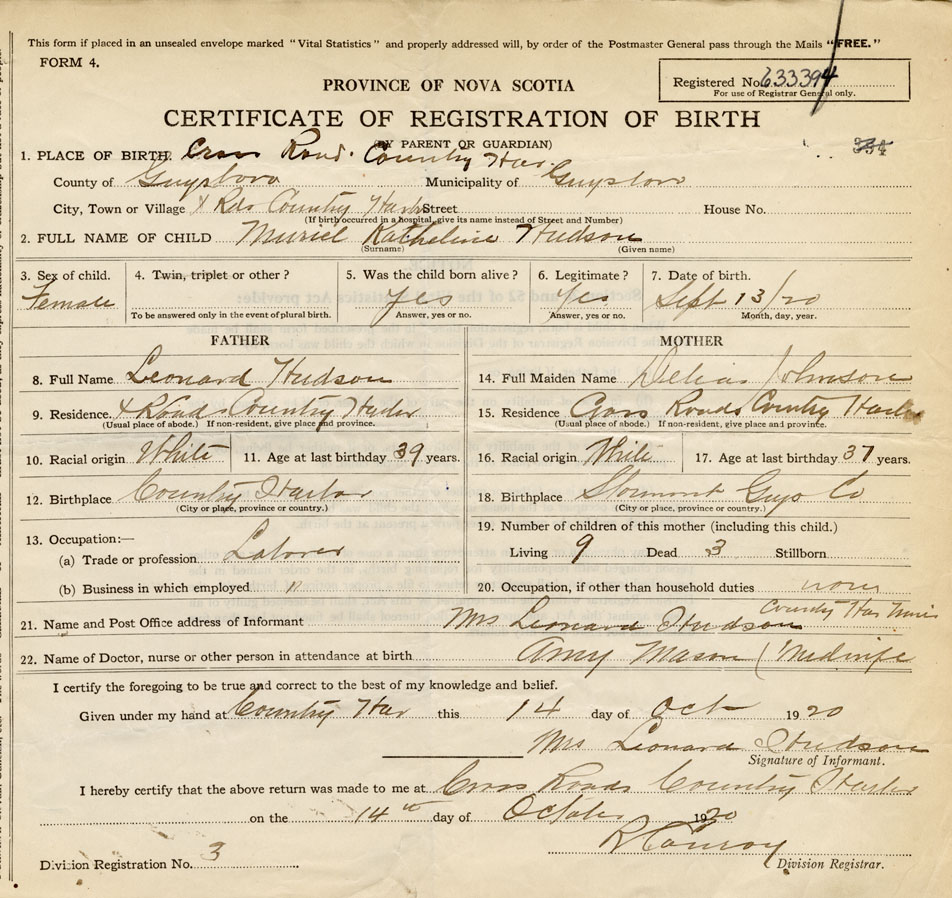 This form if placed in an unsealed envelope marked "Vital Statistics" and properly addressed will, by order of the Postmaster General pass through the Mails "FREE."
FORM 4.
Registered No. 633394
For use of Registrar General only.
PROVINCE OF NOVA SCOTIA
CERTIFICATE OF REGISTRATION OF BIRTH
(BY PARENT OR GUARDIAN)
1. PLACE OF BIRTH. Cross Road. Country Har.
County of Guysboro Municipality of Guysboro
City, Town or Village X Rds Country Harbor Street House No.
(If birth occurred in a hospital, give its name instead of Street and Number)
2. FULL NAME OF CHILD Muriel Katheline Hudson
(Surname) (Given name)
3. Sex of child. 4. Twin, triplet or other? 5. Was the child born alive? 6. Legitimate? 7. Date of birth.
Female Yes Yes Sept 13/20
To be answered only in the event of plural birth. Answer, yes or no. Answer, yes or no. Month, day, year.
FATHER
8. Full Name Leonard Hudson
9. Residence. X Roads Country Harbor
(Usual place of abode.) If non-resident, give place and province.
10. Racial origin White 11. Age at last birthday 39 years.
12. Birthplace Country Harbor
(City or place, province or country.)
13. Occupation:—
(a) Trade or profession Laborer
(b) Business in which employed "
MOTHER
14. Full Maiden Name Delias Johnson
15. Residence Cross Roads Country Harbor
(Usual place of abode.) If non-resident, give place and province.
16. Racial origin White 17. Age at last birthday 37 years.
18. Birthplace Stormont Guys Co
(City or place, province or country.)
19. Number of children of this mother (including this child.)
Living 9 Dead 3 Stillborn
20. Occupation, if other than household duties none
21. Name and Post Office address of Informant Mrs Leonard Hudson County Har
22. Name of Doctor, nurse or other person in attendance at birth Amy Mason (Midwife
I certify the foregoing to be true and correct to the best of my knowledge and belief.
Given under my hand at Country Har this 14 day of Oct 1920
Mrs Leonard Hudson
Signature of Informant.
I hereby certify that the above return was made to me at Cross Roads Country Harbor
on the 14th day of October 1920
R Conroy
Division Registration No. 3 Division Registrar.